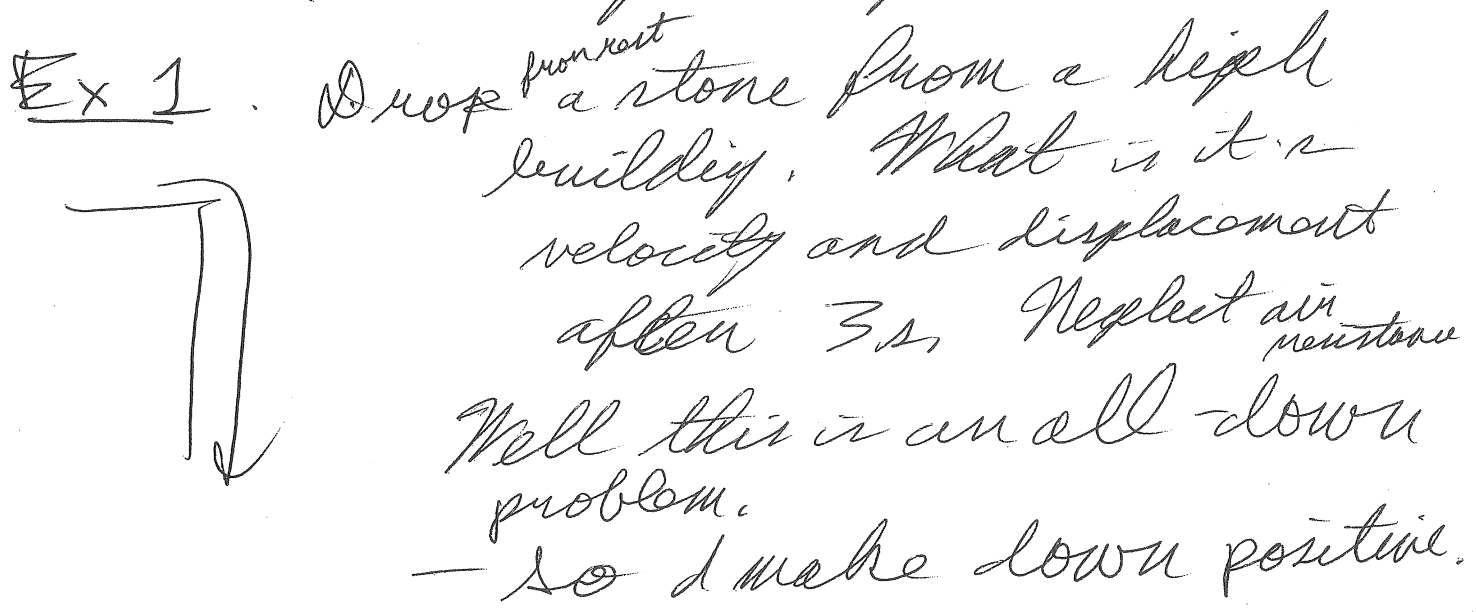 Ex 1. Drop from rest a stone from a high
building. What is it's
velocity and displacement
after 3s, Neglect air
resistance
Well this is an all-down
problem.
— so I make down positive.